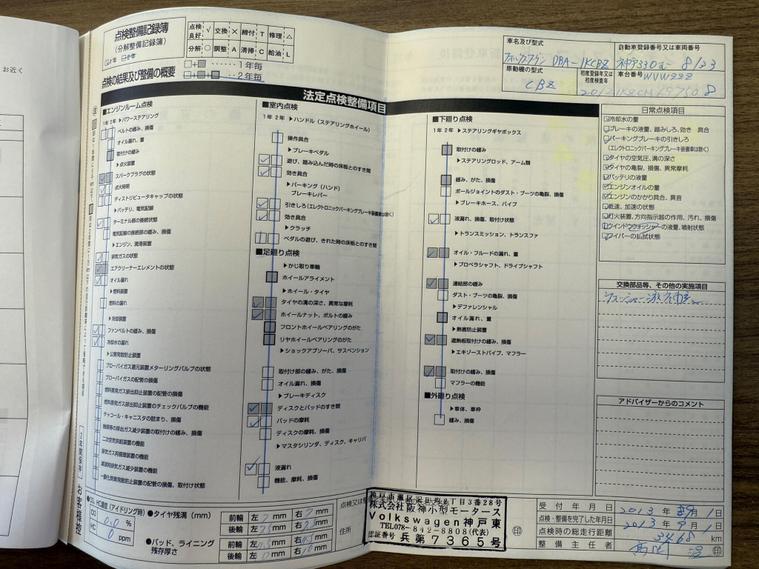 お近く
点検整備記録簿
(分解整備記録簿)
点検良好 ✓ 交換 × 締付 T 修理 △
分解 ○ 調整 A 清掃 C 給油 L
・・・・・1年毎
・・・・・2年毎
点検の結果及び整備の概要
車名及び型式
DBA-1KCBZ
自動車登録番号又は車両番号
神戸330 8123
原動機の型式
CBZ
初度登録年又は初度検査年
車台番号
WVWZZZ
法定点検整備項目
■エンジンルーム点検
1年 2年 ▶パワーステアリング
ベルトの緩み、損傷
オイル漏れ、量
取付けの緩み
▶点火装置
スパークプラグの状態
点火時期
ディストリビュータキャップの状態
▶バッテリ、電気配線
ターミナル部の接続状態
電気配線の接続部の緩み、損傷
▶エンジン、潤滑装置
排気ガスの状態
エアクリーナーエレメントの状態
オイル漏れ
▶燃料装置
燃料の漏れ
▶冷却装置
ファンベルトの緩み、損傷
冷却水の漏れ
▶公害発散防止装置
ブローバイガス還元装置メターリングバルブの状態
ブローバイガスの配管の損傷
燃料蒸発ガス排出抑止装置の配管の損傷
燃料蒸発ガス排出抑止装置のチェックバルブの機能
チャコール・キャニスタの詰まり、損傷
二次空気供給装置の機能
排気ガス再循環装置の機能
減速時排気ガス減少装置の機能
一酸化炭素等発散防止装置の配管の損傷、取付け状態
■室内点検
1年 2年 ▶ハンドル(ステアリングホイール)
操作具合
▶ブレーキペダル
遊び、踏み込んだ時の床板とのすき間
効き具合
▶パーキング(ハンド)ブレーキレバー
引きしろ(エレクトロニックパーキングブレーキ装着車は除く)
効き具合
▶クラッチ
ペダルの遊び、きれた時の床板とのすき間
■足廻り点検
▶かじ取り車輪
ホイールアライメント
▶ホイール・タイヤ
タイヤの溝の深さ、異常な摩耗
ホイールナット、ボルトの緩み
フロントホイールベアリングのがた
リヤホイールベアリングのがた
▶ショックアブソーバ、サスペンション
取付け部の緩み、がた、損傷
オイル漏れ、損傷
▶ブレーキディスク
ディスクとパッドのすき間
パッドの摩耗
ディスクの摩耗、損傷
▶マスタシリンダ、ディスク、キャリパ
液漏れ
機能、摩耗、損傷
■下廻り点検
1年 2年 ▶ステアリングギヤボックス
取付けの緩み
▶ステアリングロッド、アーム類
緩み、がた、損傷
ボールジョイントのダスト・ブーツの亀裂、損傷
▶ブレーキホース、パイプ
液漏れ、損傷、取付け状態
▶トランスミッション、トランスファ
オイル・フルードの漏れ、量
▶プロペラシャフト、ドライブシャフト
連結部の緩み
ダスト・ブーツの亀裂、損傷
▶デファレンシャル
オイル漏れ、量
▶熱害防止装置
遮熱板取付けの緩み、損傷
▶エキゾーストパイプ、マフラー
取付けの緩み、損傷
マフラーの機能
■外廻り点検
▶車体、車枠
緩み、損傷
日常点検項目
冷却水の量
ブレーキの液量、踏みしろ、効き具合
パーキングブレーキの引きしろ
(エレクトロニックパーキングブレーキ装着車は除く)
タイヤの空気圧、溝の深さ
タイヤの亀裂、損傷、異常摩耗
バッテリの液量
エンジンオイルの量
エンジンのかかり具合、異音
低速、加速の状態
灯火装置、方向指示器の作用、汚れ、損傷
ウインドウォッシャーの液量、噴射状態
ワイパーの払拭状態
交換部品等、その他の実施項目
アドバイザーからのコメント
お客様控
CO、HC濃度(アイドリング時)
CO %
HC ppm
●タイヤ残溝(mm)
前輪 左 7 mm 右 7 mm
後輪 左 mm 右 mm
●パッド、ライニング残存厚さ
前輪 左 mm 右 mm
後輪 左 mm 右 mm
住所
株式会社 阪神小型モータース
Volkswagen 神戸東
TEL078-842-8808(代表)
認証番号 兵第7365号
印
受付年月日 2013年 月 1日
点検・整備を完了した年月日 2013年 月 1日
点検時の総走行距離 3468 km
整備主任者 印